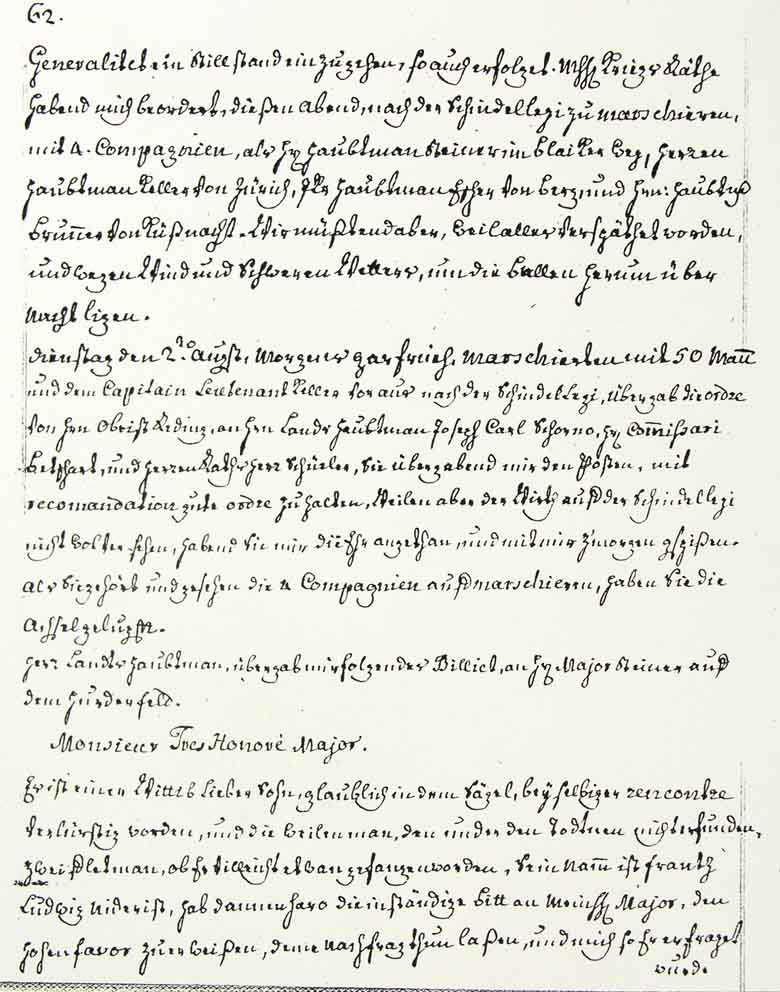 62.
Generalitet ein Stillstand einzugehen, so auch erfolget. Mhh Kriegs Räthe
habend mich beordert, dießen abend, nach der Schindellegi zu marschieren,
mit 4. Compagnien, als Hr. Haubtman Steiner im Blaiker Weg, Herren
Haubtman Keller von Zürich, Jkr Haubtman Escher von Berg und Hrn: Haubtm
Brunner von Küßnacht. Wir müßtend aber, weil alles verspäthet worden,
und wegen Wind und Schweren Wetters, um die Bellen herum über
Nacht ligen.
Dienstag den 2.to Augst, Morgens gar früeh, Marschierten mit 50 Mann
und dem Capitain Leutenant Keller voraus nach der Schindellegi, übergab die ordre
von Hrn Obrist Reding, an Hrn Lands Haubtman Joseph Carl Schorno, Hr. Commissari
Betschart, und Herren Raths Herr Schüeler, Sie übergabend mir den Posten, mit
recomandation gute ordre zu halten, Weilen aber der Wirth auf der Schindellegi
nicht wol versehen, habend Sie mir die Ehr angethan, und mit mir z'morgen gspißen.
als Sie gehört und gesehen die 4 Compagnien auf marschieren, haben Sie die
Achsel gelupfft.
Herr Landts Haubtman, übergab mir folgendes Billiet, an Hr. Major Steiner auf
dem Hurderfeld.
Monsieur Tres Honoré Major.
Es ist einer Wittib Lieber Sohn, glaublich in dem Sägel, bey selbiger rencontre
verlürstig worden, und die weilen man, den under den Todtnen nicht erfunden,
zweifletman, ob Er villeicht etwan gefangen worden, Sein Namm ist frantz
Ludwig Niderist, hab dannenharo die inständige bitt an Meinhh Major, den
hohen favor zu erweißen, deme nachfrag thun laßen, und mich so Er erfraget
wurde